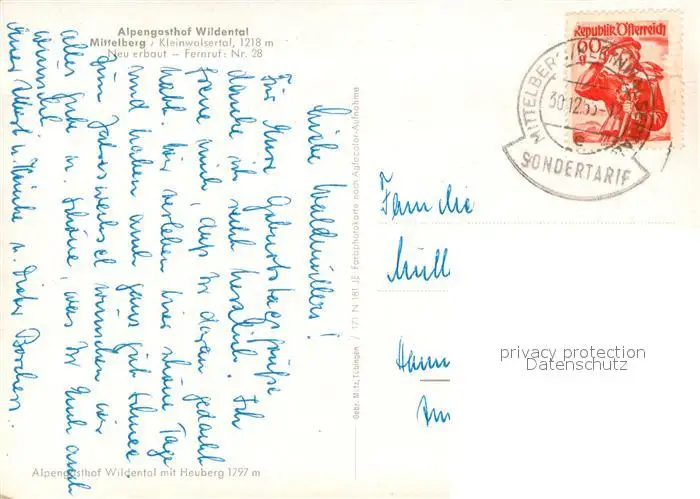 Alpengasthof Wildental
Mittelberg / Kleinwalsertal, 1218 m
Neu erbaut - Fernruf: Nr. 28
Liebe Waldmüllers!
Für Eure Geburtstagsgrüße
danke ich recht herzlich. Ich
freue mich, daß Ihr daran gedacht
habt. Wir verleben hier schöne Tage
und haben auch ganz gut Schnee
Zum Jahreswechsel wünschen wir
alles Gute u. Schöne, was Ihr Euch auch
wünscht
Eure
u.
Alpengasthof Wildental mit Heuberg 1797 m
Gebr. Metz, Tübingen / 171 N 181 JE Farbphotokarte nach Agfacolor-Aufnahme
Republik Österreich
MITTELBERG
30.12.55
e
SONDERTARIF
Familie
Müll
Hann
Am
privacy protection
Datenschutz